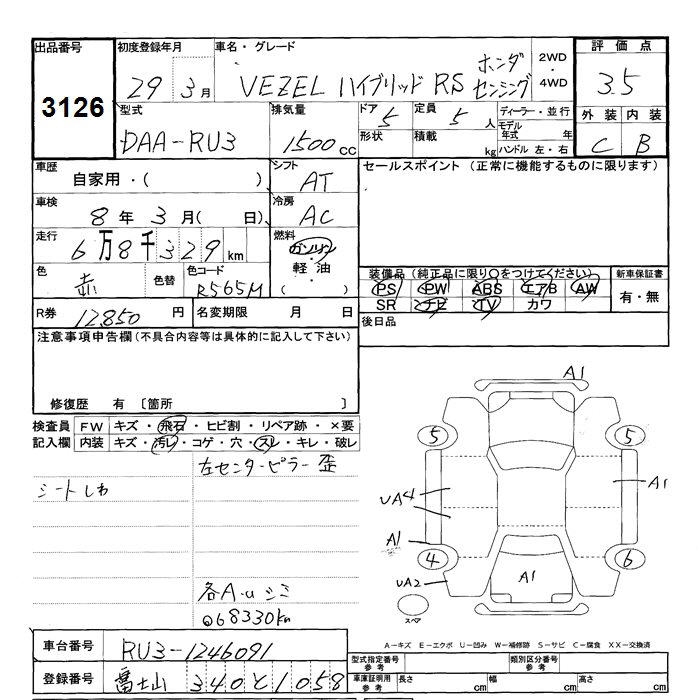 出品番号 初度登録年月 車名・グレード 評価点
3126 29 3月 VEZEL ハイブリッド RS ホンダ センシング 2WD・4WD 3.5
型式 排気量 ドア 定員 ディーラー・並行 外装 内装
DAA-RU3 1500cc 5 5人 モデル年式 年 C B
形状 積載 kg ハンドル 左・右
車歴 シフト セールスポイント (正常に機能するものに限ります)
自家用・( ) AT
車検 冷房
8年 3月( 日) AC
走行 燃料
6万8千329km ガソリン・軽油・( )
色 色替 色コード 装備品 (純正品に限り○をつけてください) 新車保証書
赤 R565M PS PW ABS エアB AW 有・無
SR ナビ TV カワ
R券 12,850円 名変期限 月 日 後日品
注意事項申告欄(不具合内容等は具体的に記入して下さい)
修復歴 有 〔箇所 〕
検査員 FW キズ・飛石・ヒビ割・リペア跡・×要
記入欄 内装 キズ・汚レ・コゲ・穴・スレ・キレ・破レ
左センターピラー歪
シートしわ
各A.uシミ
68330km
A1
5 5
UA4 A1
A1
4 6
UA2 A1
スペア
A-キズ E-エクボ U-凹み W-補修跡 S-サビ C-腐食 XX-交換済
車台番号 RU3-1246091 型式指定番号 参考 類別区分番号 参考
登録番号 富士山 340と1058 車庫証明用 参考 長さ cm 幅 cm 高さ cm